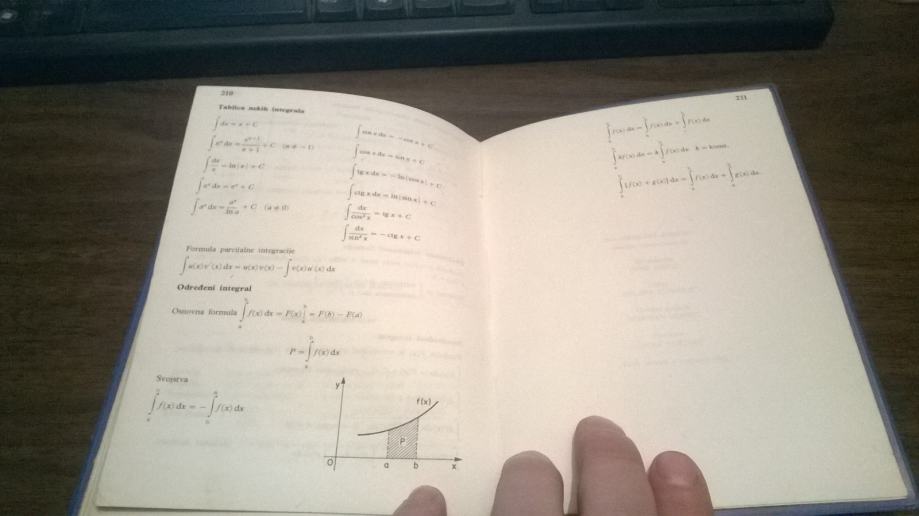 210
Tablica nekih integrala
∫ dx = x + C
∫ xⁿ dx = xⁿ⁺¹/(n + 1) + C (n ≠ −1)
∫ dx/x = ln|x| + C
∫ eˣ dx = eˣ + C
∫ aˣ dx = aˣ/ln a + C (a ≠ 0)
∫ sin x dx = −cos x + C
∫ cos x dx = sin x + C
∫ tg x dx = −ln|cos x| + C
∫ ctg x dx = ln|sin x| + C
∫ dx/cos² x = tg x + C
∫ dx/sin² x = −ctg x + C
Formula parcijalne integracije
∫ u(x) v′(x) dx = u(x) v(x) − ∫ v(x) u′(x) dx
Određeni integral
Osnovna formula ∫ f(x) dx = F(x)| = F(b) − F(a)
P = ∫ f(x) dx
Svojstva
∫ f(x) dx = − ∫ f(x) dx
y
f(x)
P
O a b x
211
∫ f(x) dx = ∫ f(x) dx + ∫ f(x) dx
∫ kf(x) dx = k ∫ f(x) dx k = konst.
∫ [f(x) + g(x)] dx = ∫ f(x) dx + ∫ g(x) dx.